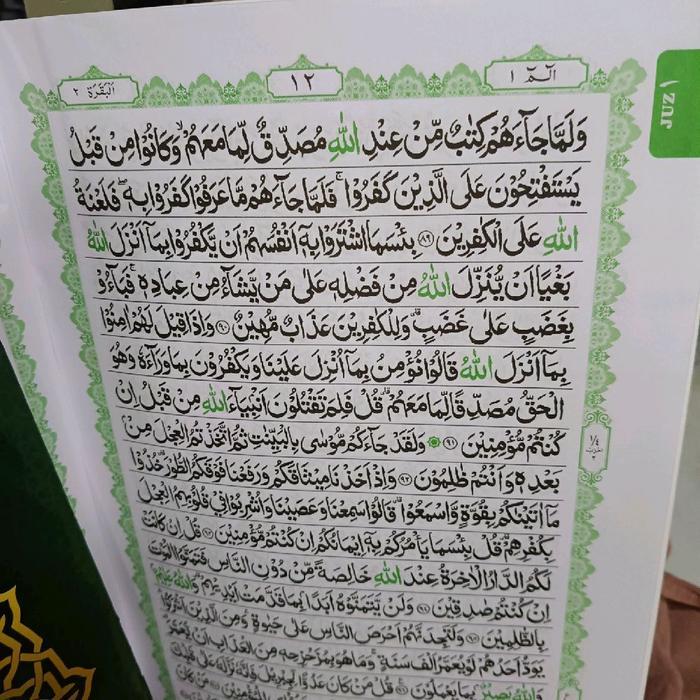 البقرة ٢
١٢
الٓمّٓ ١
JUZ ١
وَلَمَّا جَآءَهُمْ كِتٰبٌ مِّنْ عِنْدِ اللّٰهِ مُصَدِّقٌ لِّمَا مَعَهُمْۙ وَكَانُوْا مِنْ قَبْلُ
يَسْتَفْتِحُوْنَ عَلَى الَّذِيْنَ كَفَرُوْاۚ فَلَمَّا جَآءَهُمْ مَّا عَرَفُوْا كَفَرُوْا بِهٖۖ فَلَعْنَةُ
اللّٰهِ عَلَى الْكٰفِرِيْنَ ٨٩ بِئْسَمَا اشْتَرَوْا بِهٖٓ اَنْفُسَهُمْ اَنْ يَّكْفُرُوْا بِمَآ اَنْزَلَ اللّٰهُ
بَغْيًا اَنْ يُّنَزِّلَ اللّٰهُ مِنْ فَضْلِهٖ عَلٰى مَنْ يَّشَآءُ مِنْ عِبَادِهٖۚ فَبَآءُوْ
بِغَضَبٍ عَلٰى غَضَبٍۗ وَلِلْكٰفِرِيْنَ عَذَابٌ مُّهِيْنٌ ٩٠ وَاِذَا قِيْلَ لَهُمْ اٰمِنُوْا
بِمَآ اَنْزَلَ اللّٰهُ قَالُوْا نُؤْمِنُ بِمَآ اُنْزِلَ عَلَيْنَا وَيَكْفُرُوْنَ بِمَا وَرَآءَهٗ وَهُوَ
الْحَقُّ مُصَدِّقًا لِّمَا مَعَهُمْۗ قُلْ فَلِمَ تَقْتُلُوْنَ اَنْۢبِيَآءَ اللّٰهِ مِنْ قَبْلُ اِنْ
كُنْتُمْ مُّؤْمِنِيْنَ ٩١ وَلَقَدْ جَآءَكُمْ مُّوْسٰى بِالْبَيِّنٰتِ ثُمَّ اتَّخَذْتُمُ الْعِجْلَ مِنْۢ
بَعْدِهٖ وَاَنْتُمْ ظٰلِمُوْنَ ٩٢ وَاِذْ اَخَذْنَا مِيْثَاقَكُمْ وَرَفَعْنَا فَوْقَكُمُ الطُّوْرَۗ خُذُوْا
مَآ اٰتَيْنٰكُمْ بِقُوَّةٍ وَّاسْمَعُوْاۗ قَالُوْا سَمِعْنَا وَعَصَيْنَا وَاُشْرِبُوْا فِيْ قُلُوْبِهِمُ الْعِجْلَ
بِكُفْرِهِمْۗ قُلْ بِئْسَمَا يَأْمُرُكُمْ بِهٖٓ اِيْمَانُكُمْ اِنْ كُنْتُمْ مُّؤْمِنِيْنَ ٩٣ قُلْ اِنْ كَانَتْ
لَكُمُ الدَّارُ الْاٰخِرَةُ عِنْدَ اللّٰهِ خَالِصَةً مِّنْ دُوْنِ النَّاسِ فَتَمَنَّوُا الْمَوْتَ
اِنْ كُنْتُمْ صٰدِقِيْنَ ٩٤ وَلَنْ يَّتَمَنَّوْهُ اَبَدًاۢ بِمَا قَدَّمَتْ اَيْدِيْهِمْۗ وَاللّٰهُ عَلِيْمٌۢ
بِالظّٰلِمِيْنَ ٩٥ وَلَتَجِدَنَّهُمْ اَحْرَصَ النَّاسِ عَلٰى حَيٰوةٍ وَمِنَ الَّذِيْنَ اَشْرَكُوْا
يَوَدُّ اَحَدُهُمْ لَوْ يُعَمَّرُ اَلْفَ سَنَةٍۚ وَمَا هُوَ بِمُزَحْزِحِهٖ مِنَ الْعَذَابِ اَنْ يُّعَمَّرَ
بِمَا يَعْمَلُوْنَ ٩٦ قُلْ مَنْ كَانَ عَدُوًّا لِّجِبْرِيْلَ فَاِنَّهٗ نَزَّلَهٗ عَلٰى قَلْبِكَ